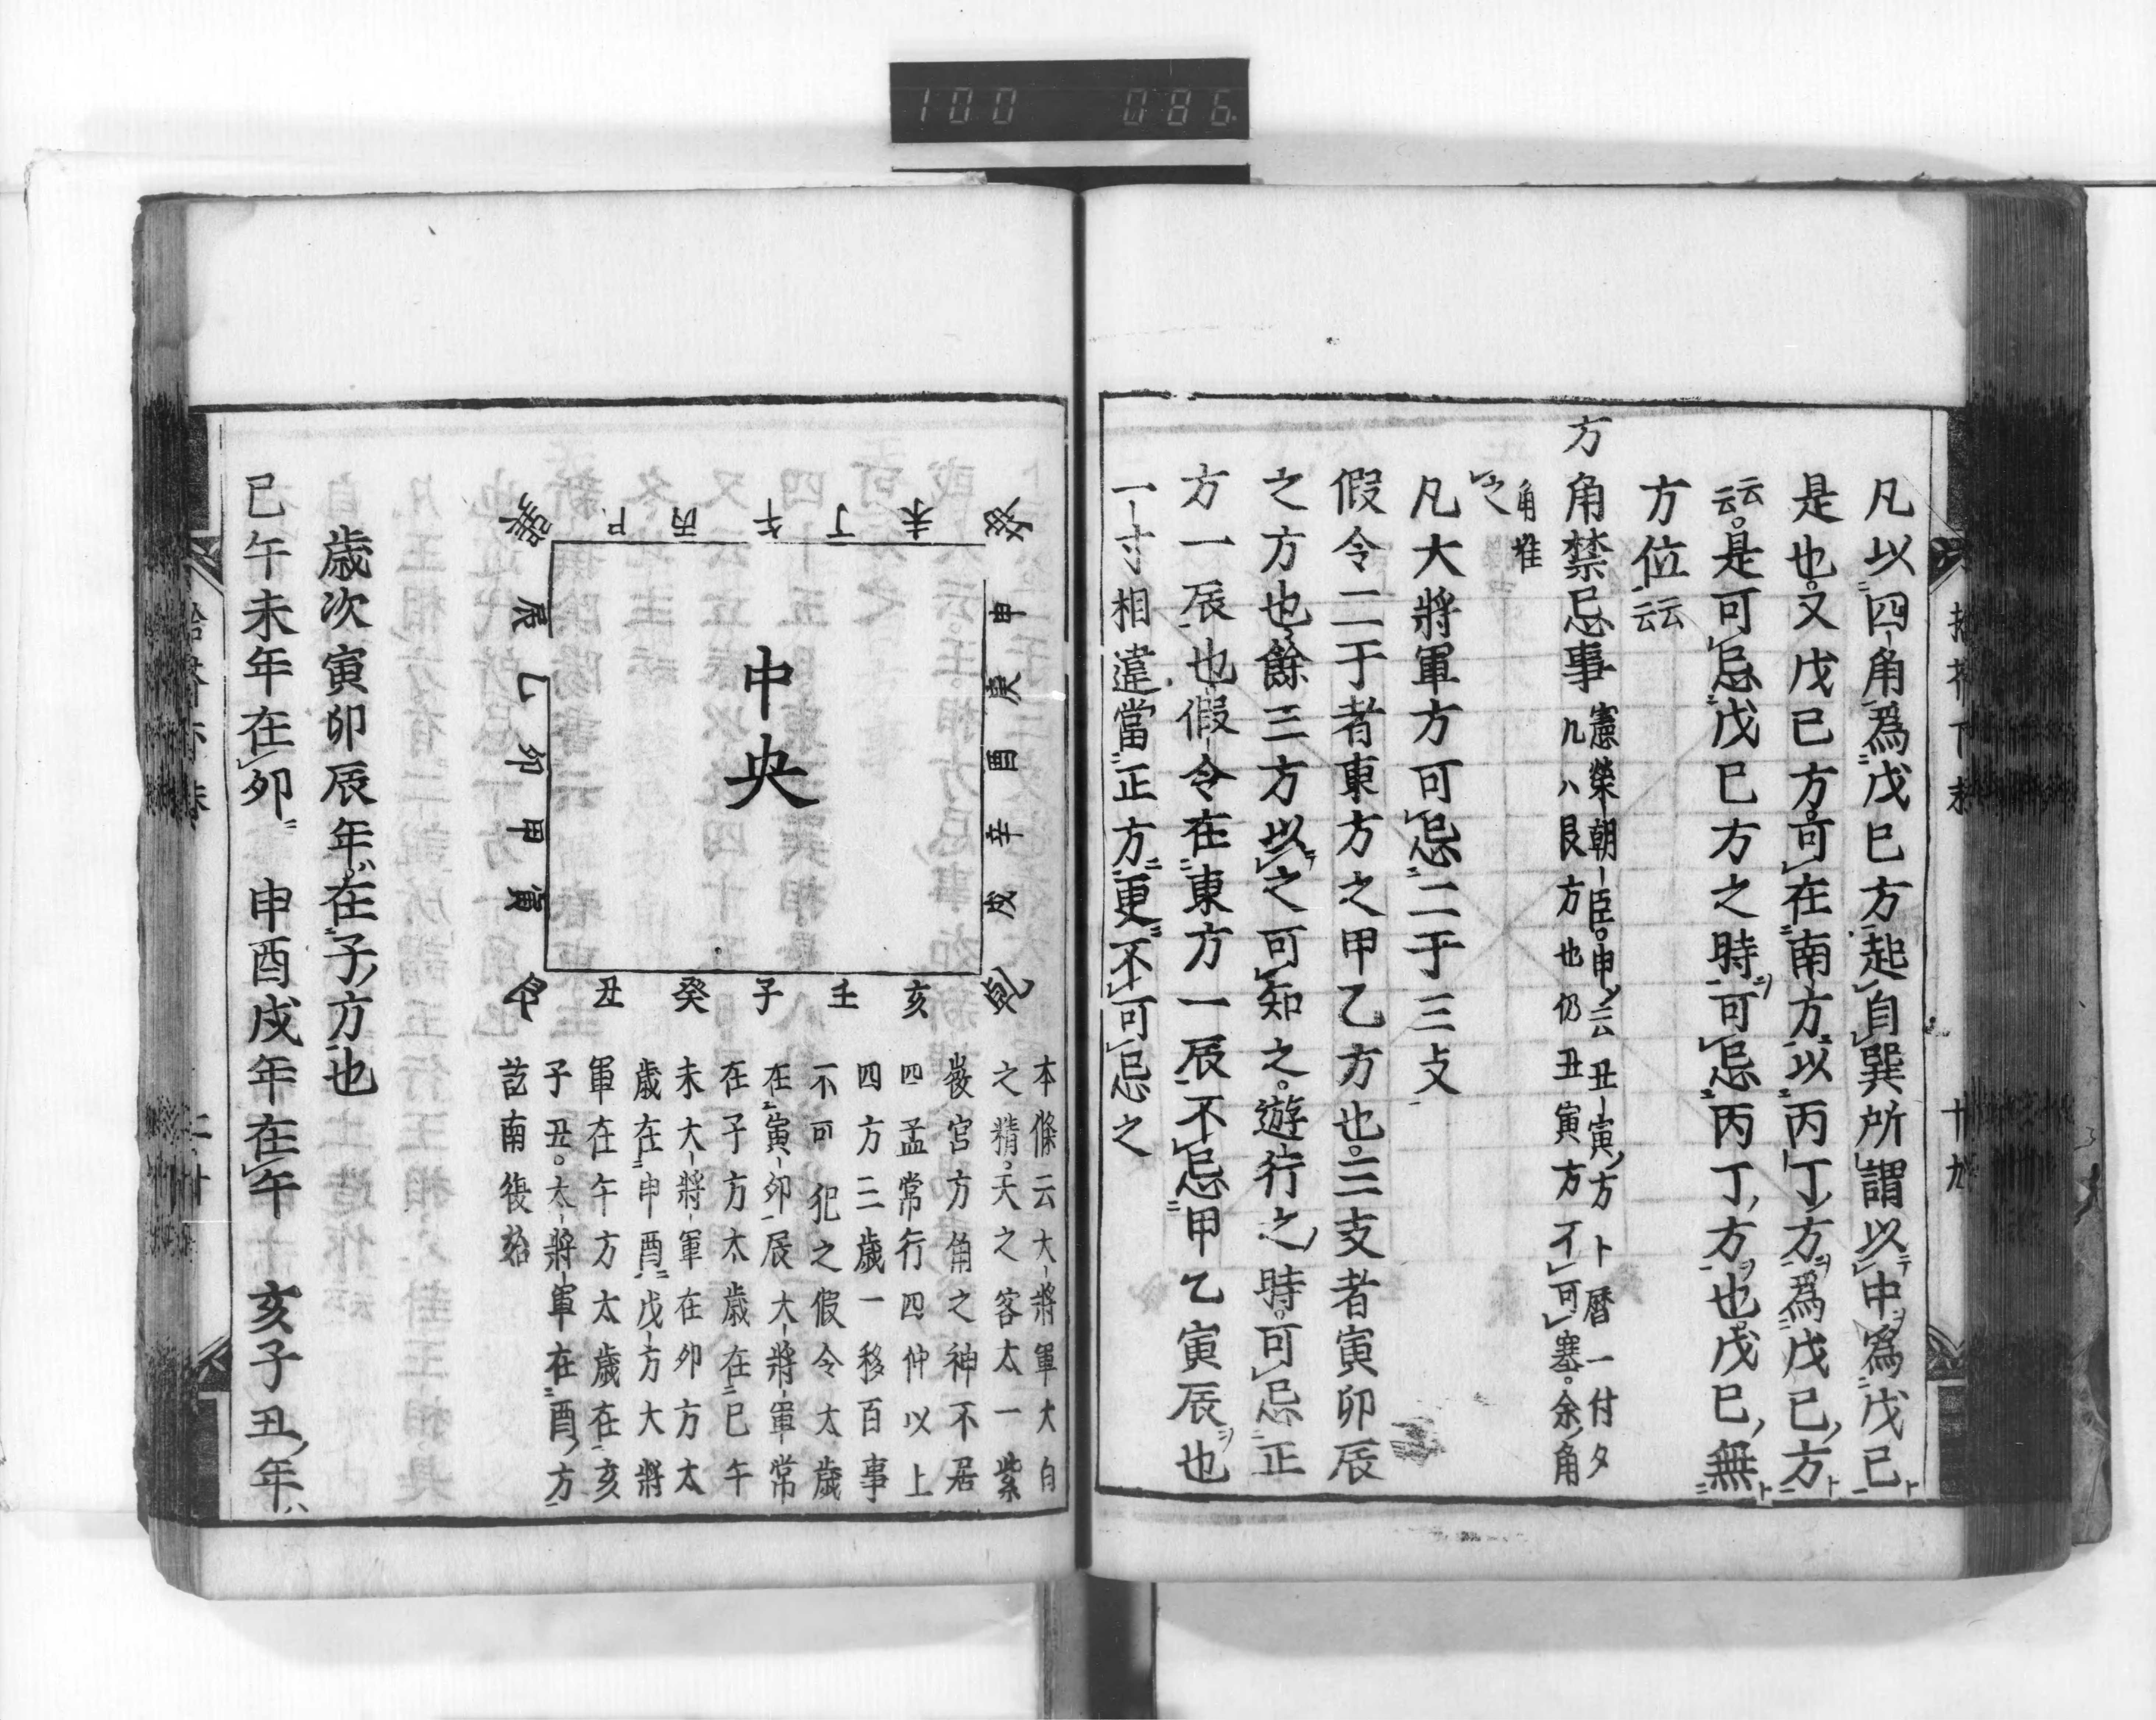 100 086
凡以四角爲戊巳方起自巽所謂以中爲戊巳
是也又戊巳方可在南方以丙丁方爲戊巳方
云云是可忌戊巳方之時可忌丙丁方也戊巳無
方位云云
方角禁忌事
憲榮朝臣申云丑寅方ト暦ニ付タ
凡ハ艮方也仍丑寅方不可塞余角
角准
之
凡大將軍方可忌二干三支
假令二干者東方之甲乙方也三支者寅卯辰
之方也餘三方以之可知之遊行之時可忌正
方一辰也假令在東方一辰不忌甲乙寅辰也
一寸相違當正方更不可忌之
坤 未 丁 午 丙 巳 巽
申 庚 酉 辛 戌
辰 乙 卯 甲 寅
中央
乾 亥 壬 子 癸 丑 艮
本條云大將軍大白
之精天之客太一紫
微宮方角之神不居
四孟常行四仲以上
四方三歳一移百事
不可犯之假令太歳
在寅卯辰大將軍常
在子方太歳在巳午
未大將軍在卯方太
歳在申酉戌方大將
軍在午方太歳在亥
子丑太將軍在酉方
訖南復始
歳次寅卯辰年在子方也
巳午未年在卯 申酉戌年在午 亥子丑年